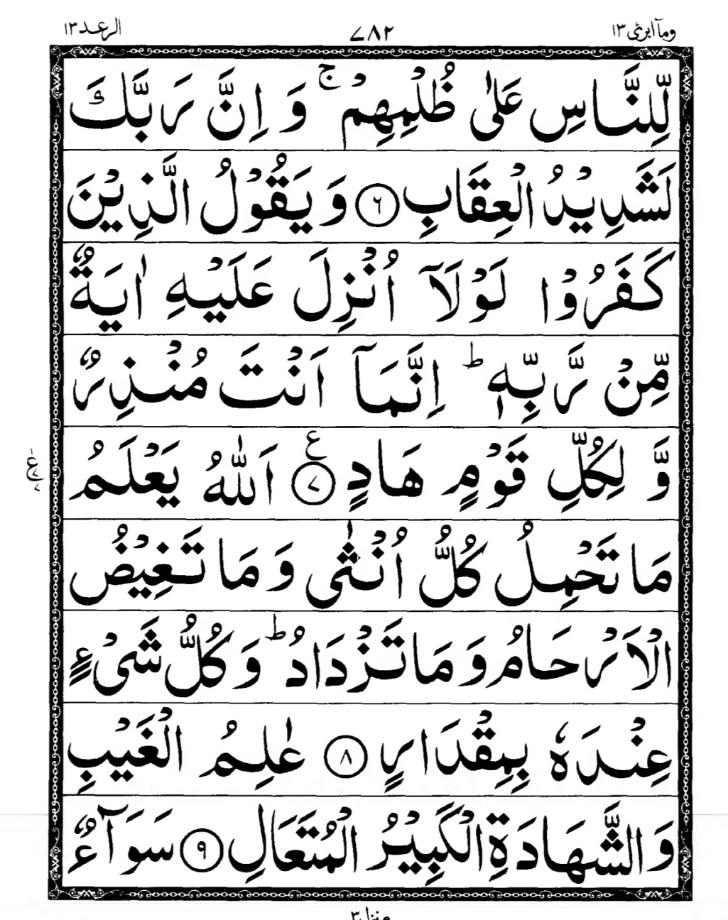 الرعد ١٣ ٧٨٢ ومآ ابرئ ١٣
لِّلنَّاسِ عَلٰى ظُلْمِهِمْ ۚ وَ اِنَّ رَبَّكَ
لَشَدِيْدُ الْعِقَابِ ﴿٦﴾ وَ يَقُوْلُ الَّذِيْنَ
كَفَرُوْا لَوْلَاۤ اُنْزِلَ عَلَيْهِ اٰيَةٌ
مِّنْ رَّبِّهٖ ؕ اِنَّمَاۤ اَنْتَ مُنْذِرٌ
وَّ لِكُلِّ قَوْمٍ هَادٍ ﴿٧﴾ ع اَللّٰهُ يَعْلَمُ
مَا تَحْمِلُ كُلُّ اُنْثٰى وَ مَا تَغِيْضُ
الْاَرْحَامُ وَ مَا تَزْدَادُ ؕ وَ كُلُّ شَىْءٍ
عِنْدَهٗ بِمِقْدَارٍ ﴿٨﴾ عٰلِمُ الْغَيْبِ
وَ الشَّهَادَةِ الْكَبِيْرُ الْمُتَعَالِ ﴿٩﴾ سَوَآءٌ
منزل ٣